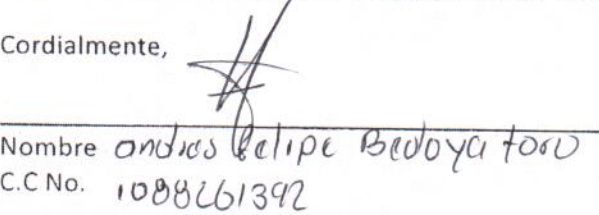 Cordialmente,
Nombre andres Felipe Bedoya toro
C.C No. 1088261392